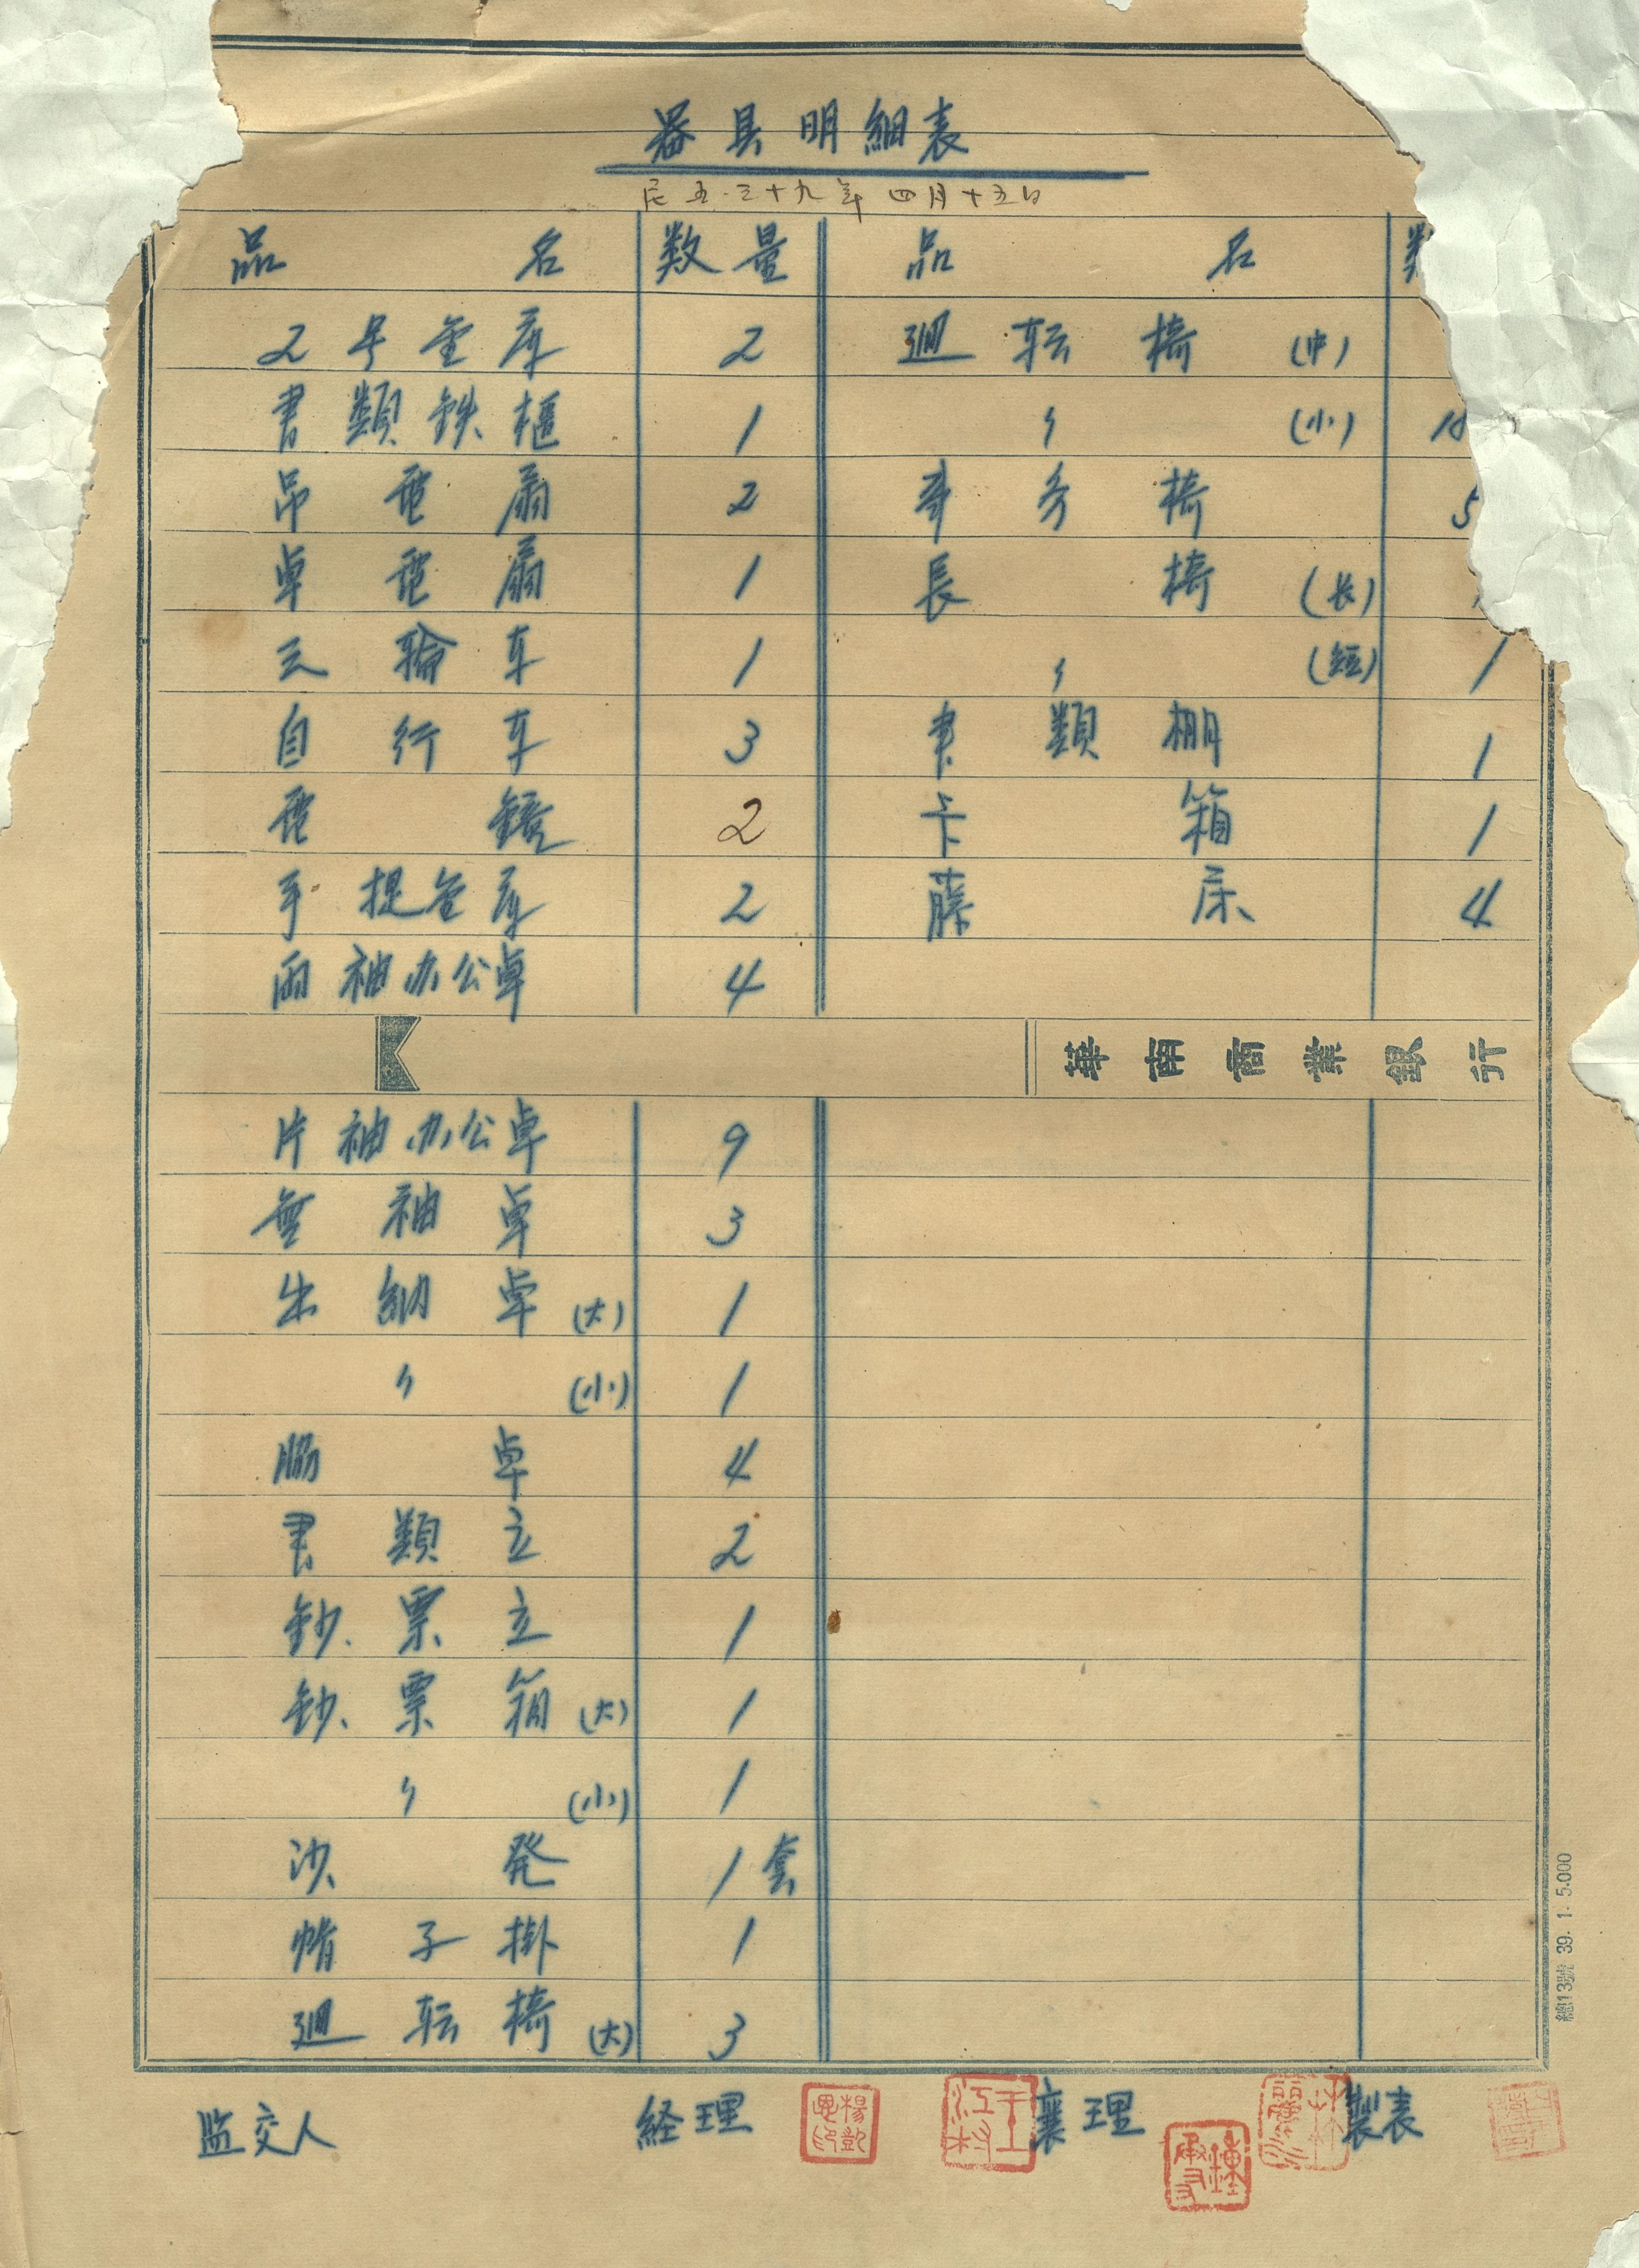 器具明細表
民五·三十九年四月十五日
品名 数量 品名
2号金庫 2 廻転椅(中)
書類鉄柩 1 〃 (小)
吊電扇 2 事务椅 5
卓電扇 1 長椅(长)
三輪車 1 〃 (短) 1
自行车 3 書類棚 1
電鐘 2 卡箱 1
手提金庫 2 藤床 4
両袖办公卓 4
華南商業銀行
片袖办公卓 9
無袖卓 3
出納卓(大) 1
〃 (小) 1
脇卓 4
書類立 2
鈔票立 1
鈔票箱(大) 1
〃 (小) 1
沙発 1套
帽子掛 1
廻転椅(大) 3
總13號 39. 1. 5.000
监交人 経理 襄理 製表